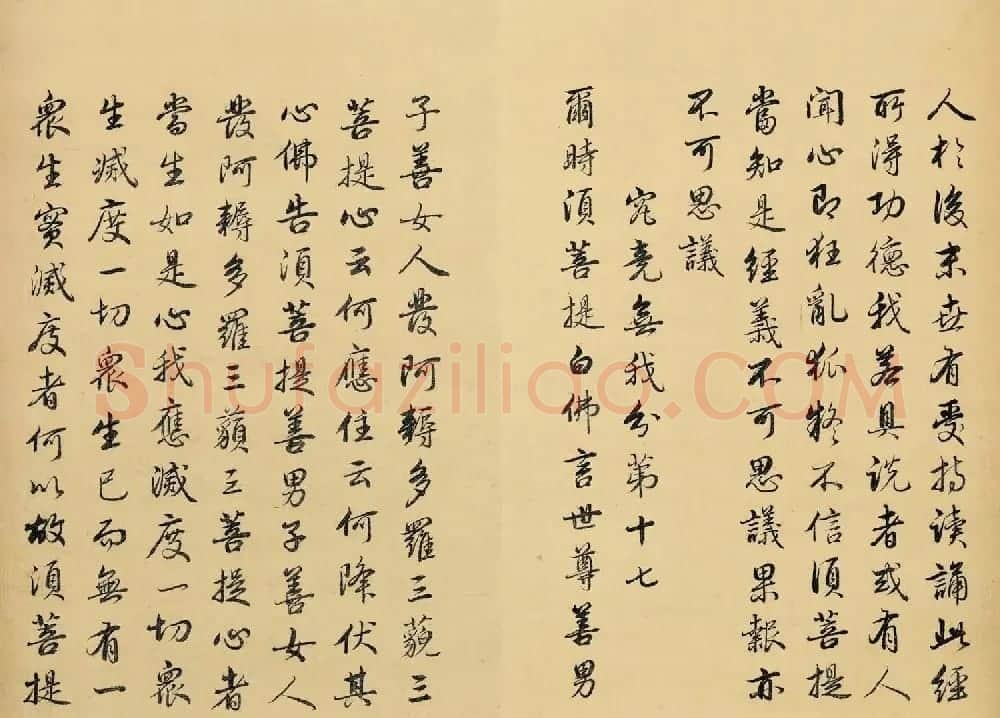 人於後末世有受持读誦此經
所得功德我若具説者或有人
聞心即狂亂狐疑不信須菩提
當知是經義不可思議果報亦
不可思議
究竟無我分第十七
爾時須菩提白佛言世尊善男
子善女人發阿耨多羅三藐三
菩提心云何應住云何降伏其
心佛告須菩提善男子善女人
發阿耨多羅三藐三菩提心者
當生如是心我應滅度一切衆
生滅度一切衆生已而無有一
衆生實滅度者何以故須菩提
Shufaziliao.COM